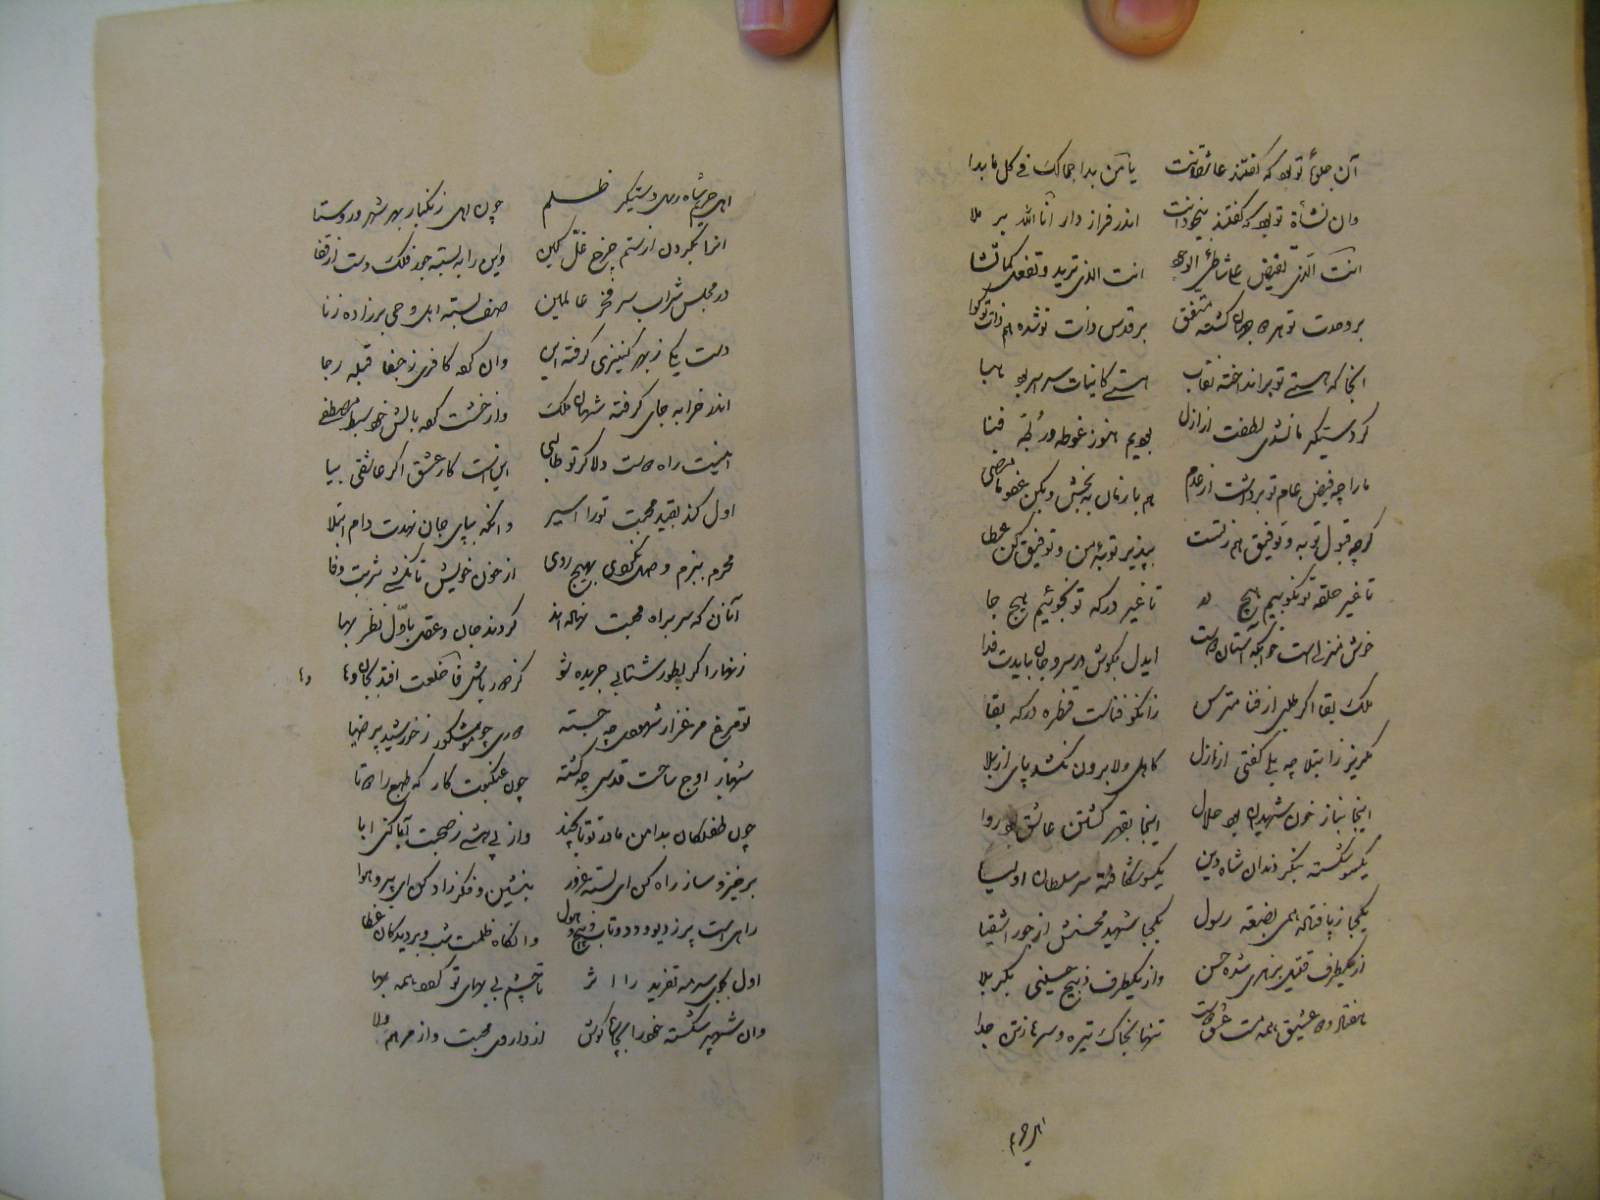 آن جلوۀ تو بود که گفتند عاشقانت یا من بدا جمالک فی کل ما بدا
وان نشأۀ تو بود که گفتند بیخودانت اندر فراز دار انا الله بر ملا
انت الذی تفیض علی شاطئ انت الذی ترید و تفعل کما تشا
بر وحدت تو هر دو جهان گشته متفق بر قدس ذات تو شده هم ذات تو گوا
آنجا که هستی تو برانداخته نقاب هستی کاینات سراسر بود هبا
گر دستگیر ما نشدی لطفت از ازل بودیم هنوز غوطه‌ور لجۀ فنا
ما را چه فیض عام تو برداشت از عدم هم باز مان ببخش و بکن عفو ما مضی
گرچه قبول توبه و توفیق هم ز تست بپذیر توبۀ من و توفیق کن عطا
تا غیر حلقۀ تو نکوبیم هیچ در تا غیر درگه تو نجوئیم هیچ جا
خوش منزلی است خوابگه آستان دوست ایدل بکوش در سر و جان بایدت فدا
ملک بقا اگر طلبی از فنا مترس زانکو فناست قنطرۀ درگه بقا
مگریز ز ابتلا چه بلی گفتی از ازل کاهل ولا برون نکشد پای از بلا
اینجا بناز خون شهیدان بود حلال اینجا بقهر کشتن عاشق بود روا
یکسو شکسته بنگر دندان شاه دین یکسو شکافته سر سلطان اولیا
یکجا ز پا فتاده همی بضعۀ رسول یکجا شهید محسنش از جور اشقیا
از یکطرف قتیل بزهری شده حسن وز یکطرف ذبیح حسینی بکربلا
هفتاد و دو عشیق همه مست عشق دوست تنها بخاک تیره و سرها ز تن جدا
اهل حرم
اهل حریم شاه رسل دستگیر ظلم چون اهل زنگبار بهر شهر و روستا
آنرا بگردن از ستم چرخ غل کین وین را به بسته جور فلک دست از قفا
در مجلس شراب سر فخر عالمین صف بسته اهل وحی بر زادۀ زنا
دست یکی ز بهر کنیزی گرفته این وان گفته کافری ز جفا قبله رجا
اندر خرابه جای گرفته شهان ملک وز خشت کرده بالش خود سبط مصطفی
اینست راه دوست دلا گر تو طالبی این است کار عشق اگر عاشقی بیا
اول کند بقید محبت تو را اسیر وانگه بپای جان نهدت دام ابتلا
محرم ببزم وصل نگردی بهیچ روی از خون خویش تا نکشی شربت وفا
آنان که سر براه محبت نهاده‌اند کردند جان و عقل باول نظر بها
زنهار اگر بطور شتابی جریده شو کز دور باش فاخلعت افتد بجان وها
تو مرغ مرغزار شهودی چه جسته دوری چو موشکور ز خورشید پر ضیا
شهباز اوج ساحت قدسی چه گشته چون عنکبوت کار که طبع را دوتا
چون طفلکان بدامن مادر تو تا بچند وز بی‌هشی ز صحبت آبا کنی ابا
برخیز و ساز راه کن ای بستۀ غرور بنشین و فکر زاد کن ای پیرو هوا
راهی است پر ز دیو و دد و تاب و پیچ و هول وانگاه ظلمت شب و بر دیدگان غطا
اول بجوی سرمۀ تفرید را اثر تا چشم بی‌بهای تو گردد همه بها
وان شهپر شکسته خود را بچاره کوش از داروی محبت و از مرهم ولا